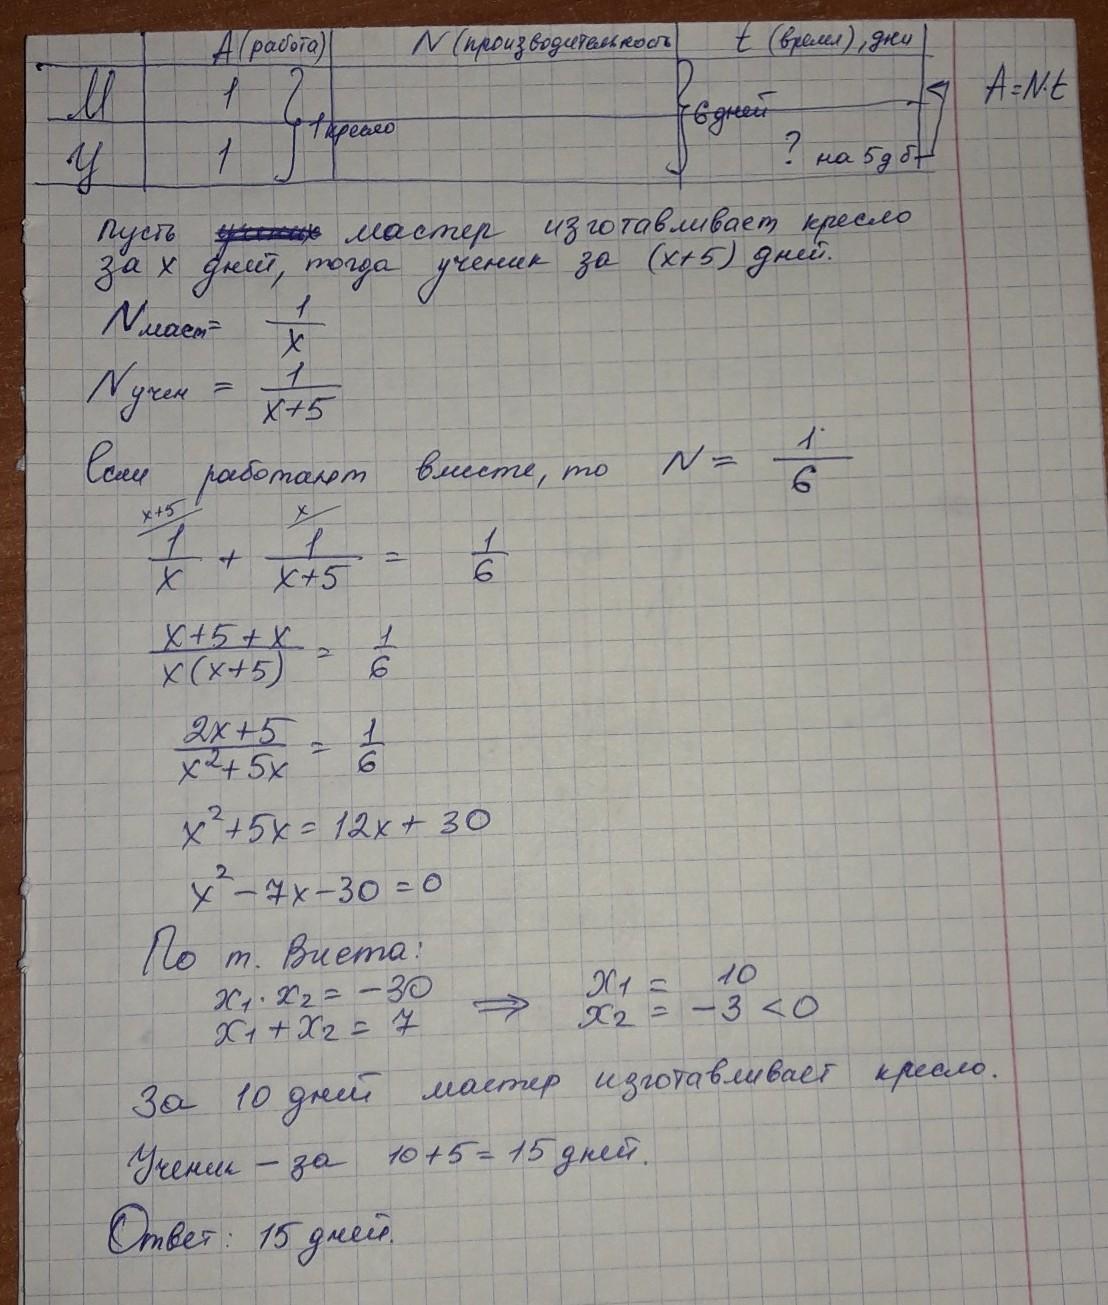 A (работа) N (производительность t (время), дни
М 1 A=N·t
1 кресло 6 дней
У 1 ? на 5 д б
пусть мастер изготавливает кресло
за x дней, тогда ученик за (x+5) дней.
N маст = 1/x
N учен = 1/(x+5)
Если работают вместе, то N = 1/6
x+5 x
1/x + 1/(x+5) = 1/6
(x+5+x)/(x(x+5)) = 1/6
(2x+5)/(x²+5x) = 1/6
x²+5x = 12x + 30
x² – 7x – 30 = 0
По т. Виета:
x₁·x₂ = –30 ⇒ x₁ = 10
x₁ + x₂ = 7 x₂ = –3 < 0
За 10 дней мастер изготавливает кресло.
Ученик – за 10+5 = 15 дней.
Ответ: 15 дней.